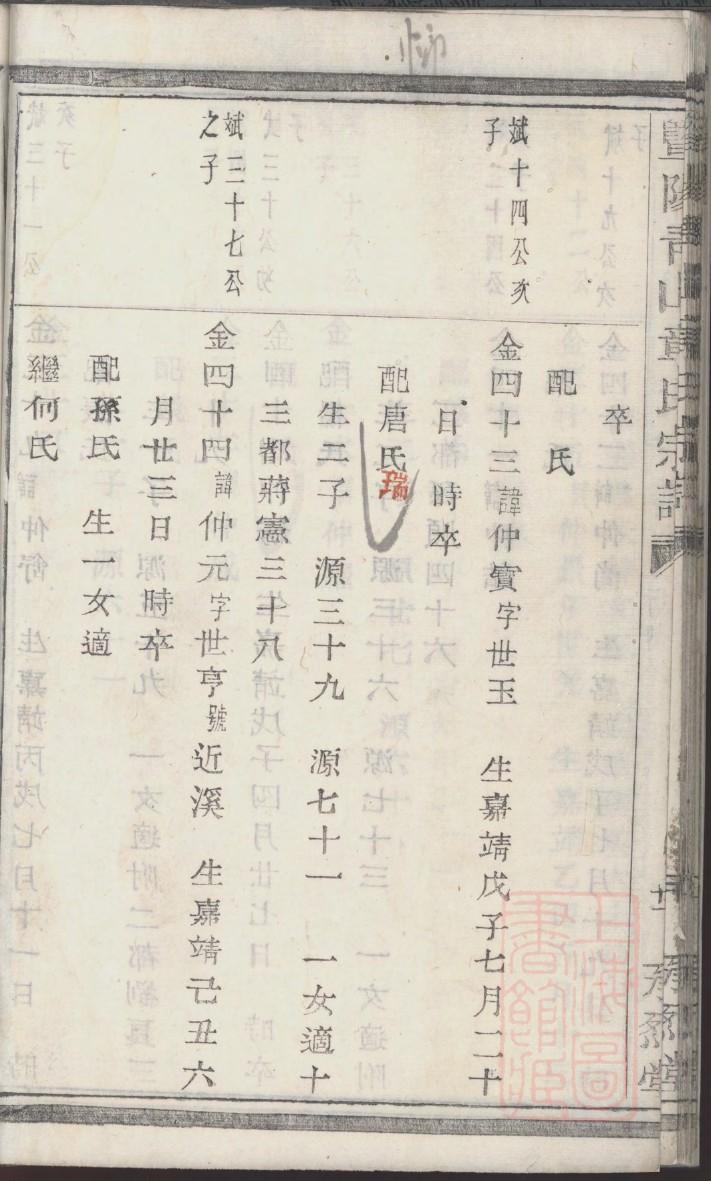 暨陽青山章氏宗譜
卒
配 氏
斌十四公次
子
金四十三諱仲寳字世玉 生嘉靖戊子七月二十
日 時卒
配唐氏
瑞
生二子 源三十九 源七十一 一女適十
三都蔣憲三十八
斌三十七公
之子
金四十四諱仲元字世亨號近溪 生嘉靖己丑六
月廿三日 時卒
配孫氏 生一女適
繼何氏